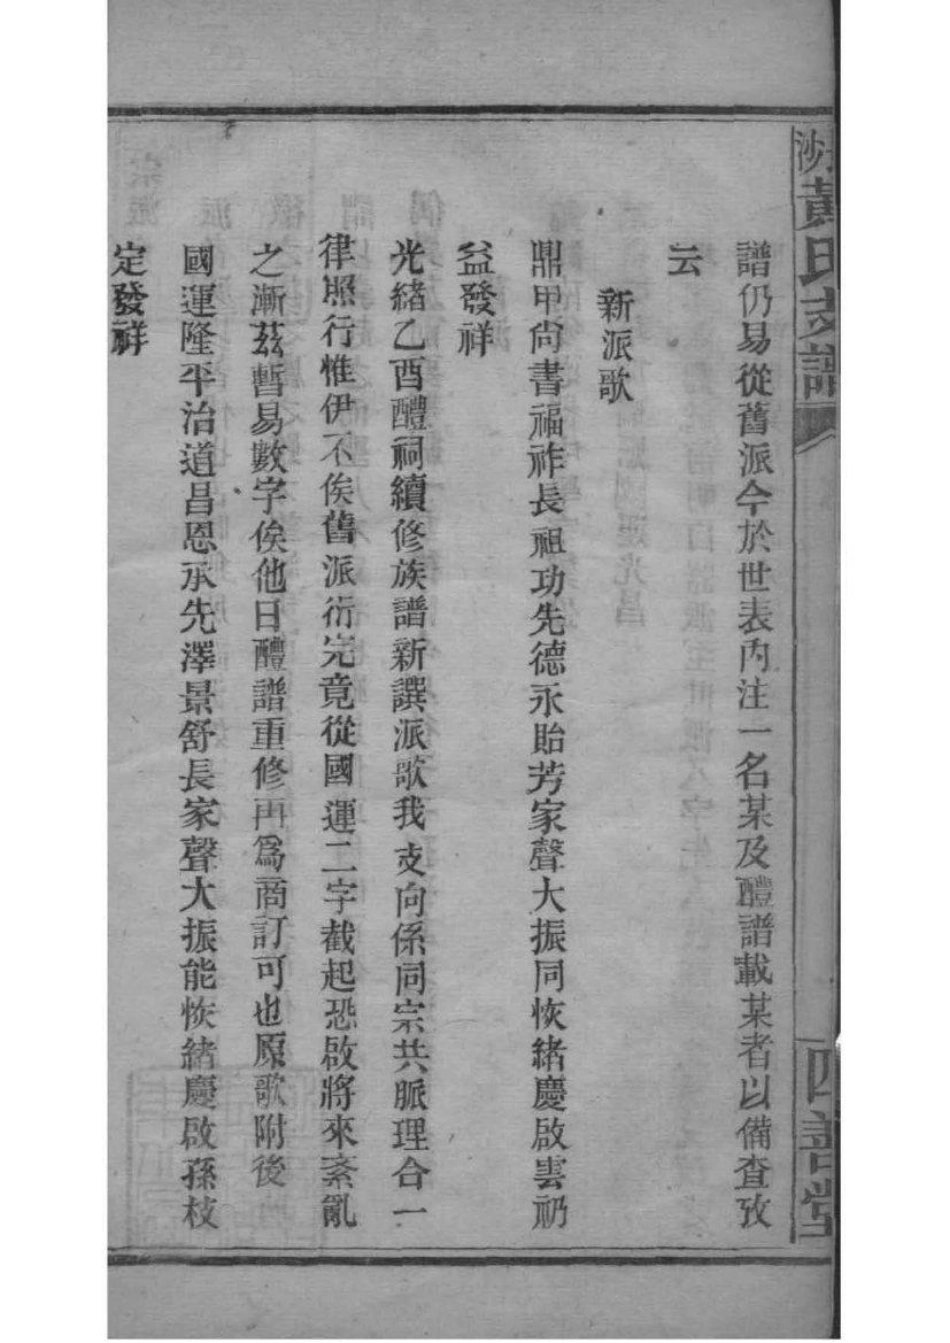 沙黃氏支譜
四善堂
譜仍易從舊派今於世表內注一名某及醴譜載某者以備查攷
云
新派歌
鼎甲尙書福祚長祖功先德永貽芳家聲大振同恢緒慶啟雲礽
益發祥
光緒乙酉醴祠續修族譜新譔派歌我支向係同宗共脈理合一
律照行惟伊不俟舊派衍完竟從國運二字截起恐啟將來紊亂
之漸茲暫易數字俟他日醴譜重修再爲商訂可也原歌附後
國運隆平治道昌恩承先澤景舒長家聲大振能恢緒慶啟孫枝
定發祥